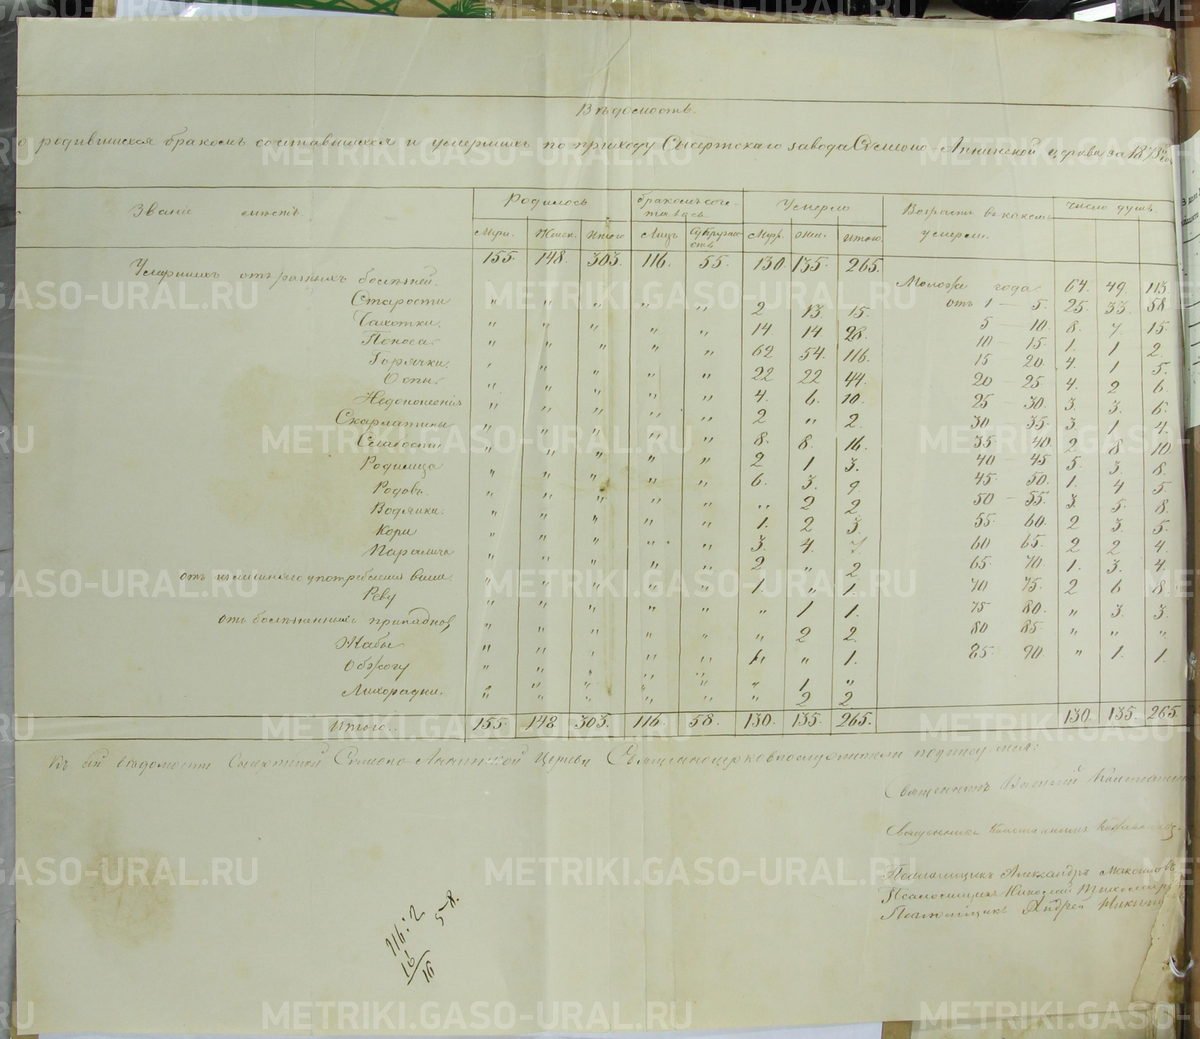 METRIKI.GASO-URAL.RU
Вѣдомость
о родившихся бракомъ составшихся и умершихъ по приходу Сысертскаго завода Симеоно-Аннинской церкви за 1878 год
Званіе мѣстъ Родилось бракомъ сос- Умерло Возрастъ въ какомъ число душъ
тавшась умерли.
Муж. Женск. Итого Лицъ Супружествъ Муж. Жен. Итого
155. 148. 303. 116. 55. 130. 135. 265.
Умершихъ отъ разныхъ болѣзней. Моложе года 64. 49. 113.
Старости " " " " " 2 13. 15. отъ 1 — 5. 25 33. 58
Чахотки. " " " " " 14. 14 28. 5 — 10. 8. 7. 15.
Поноса. " " " " " 62 54. 116. 10 — 15. 1. 1 2.
Горячки. " " " " " 22 22 44. 15 20. 4. 1 5.
Оспы. " " " " " 4. 6. 10. 20 — 25 4. 2 6
Недоношенія " " " " " 2 " 2. 25 — 30. 3. 3. 6.
Скарлатины " " " " " 8. 8. 16. 30 35. 3. 1 4.
Слабости " " " " " 2 1 3. 35 40. 2 8. 10
Родимца " " " " " 6. 3. 9. 40 — 45 5. 3. 8.
Родовъ. " " " " " " 2 2 45 50. 1. 4 5.
Водянки. " " " " " 1. 2 3. 50 — 55. 3. 5. 8.
Кори " " " " " 3. 4. 7. 55. 60. 2 3. 5.
Паралича " " " " " 2 " 2 60 65. 2 2 4.
отъ излишняго употребленія вина. " " " " " 1. " 1. 65 70. 1. 3. 4.
Реву " " " " " " 1 1. 70 75. 2 6 8.
отъ болѣзненныхъ припадков " " " " " " 2 2. 75 80. " 3. 3.
Жабы " " " " " 1. " 1. 80 85. " " "
Обжогу " " " " " " 1 " 85. 90. " 1. 1.
Лихорадки. " " " " " " 2 2
Итого.. 155. 148 303. 116. 58. 130. 135. 265. 130. 135. 265
Къ сей вѣдомости Сысертской Симеоно-Аннинской Церкви Священноцерковнослужители подписуемся:
Священникъ
Священникъ
Псаломщикъ Александръ Максимовъ
Псаломщикъ Николай
Псаломщикъ Андрей
116:2
5-8.
16
16